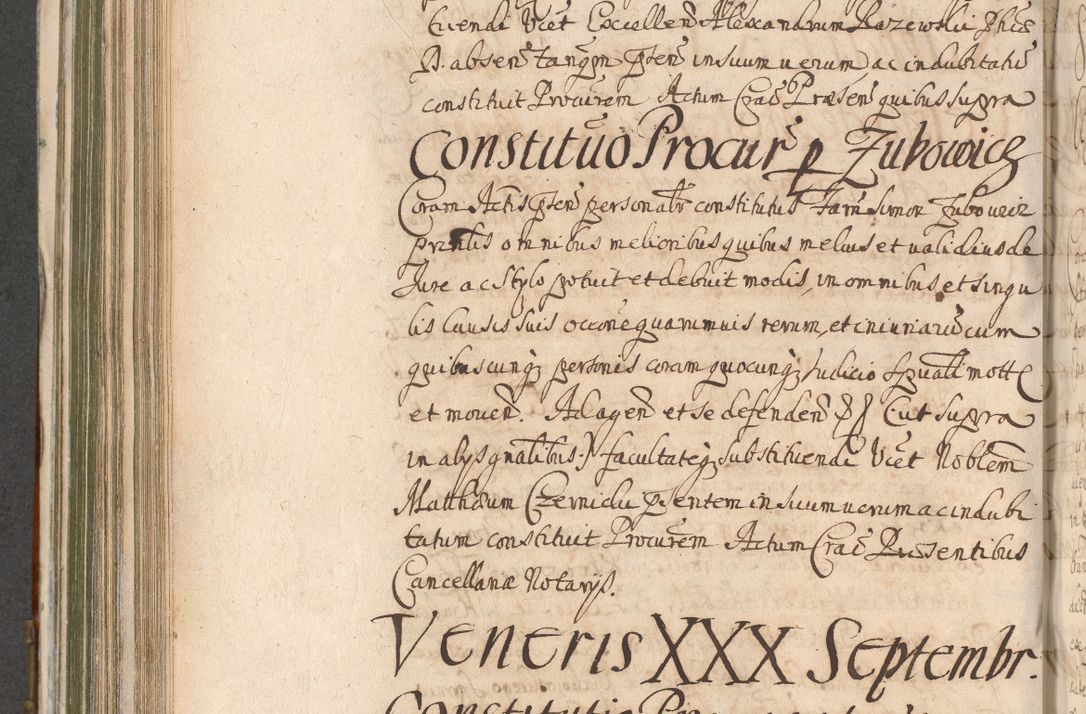 tuendi Vcet Excellen Alexandrum Razewski Phiae
D. absen tanqm pten in suum verum ac indubitatu
constituit Procurem Actum Crac Præsen quibus supra
Constituo Procur p Zubowicz
Coram Actis pten personalr constitutus Fam Simon Zubowicz
prntis omnibus melioribus quibus melius et validius de
Jure ac stylo potuit et debuit modis, in omnibus et singu
lis causis suis occone quarumuis rerum, et iniuriaru cum
quibuscunq personis coram quocunq Judicio Spuali mott
et mouen. Ad agen et se defenden ut supra
in alys gnalibus facultateq substituendi Vcet Noblem
Matthæum Czernicki ptentem in suum uerum ac indubi
tatum constituit Procurem Actum Crac Præsentibus
Cancellariæ Notarys.
Veneris XXX Septembr.
Constitutio